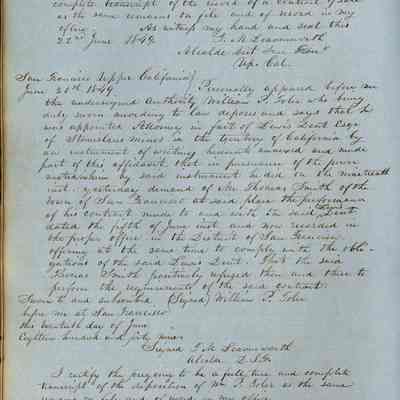 complete transcript of the record of a contract of sale
as the same remains on file and of record in my
office. As witness my hand and seal this
22nd June 1849. T. M. Leavenworth
Alcalde Dist. San Fran
Up. Cal.
San Francisco Upper California
June 20th 1849. Personally appeared before me
the undersigned Authority William P. Toler who being
duly sworn according to law deposes and says that he
was appointed Attorney in fact of Lewis Dent Esqr
of Stanislaus mines in the Territory of California by
an instrument of writing hereunto annexed and made
part of this affidavit that in pursuance of the power
in him by said instrument he did on the nineteenth
inst. yesterday demand of Mr Thomas Smith of the
town of San Francisco at said place the performance
of his contract made to and with the said Lewis Dent
dated the fifth of June inst and now recorded in
the proper office in the District of San Francisco
offering at the same time to comply with the obli-
gations of the said Lewis Dent. That the said
Thomas Smith positively refused then and there to
perform the requirements of the said contract.
Sworn to and subscribed (Signed) William P. Toler
before me at San Francisco
this twentieth day of June
Eighteen hundred and forty nine
Signed T. M. Leavenworth
Alcalde D.S.F.
I certify the foregoing to be a full, true and complete
transcript of the deposition of Wm P. Toler as the same
remains on file and of record in my office